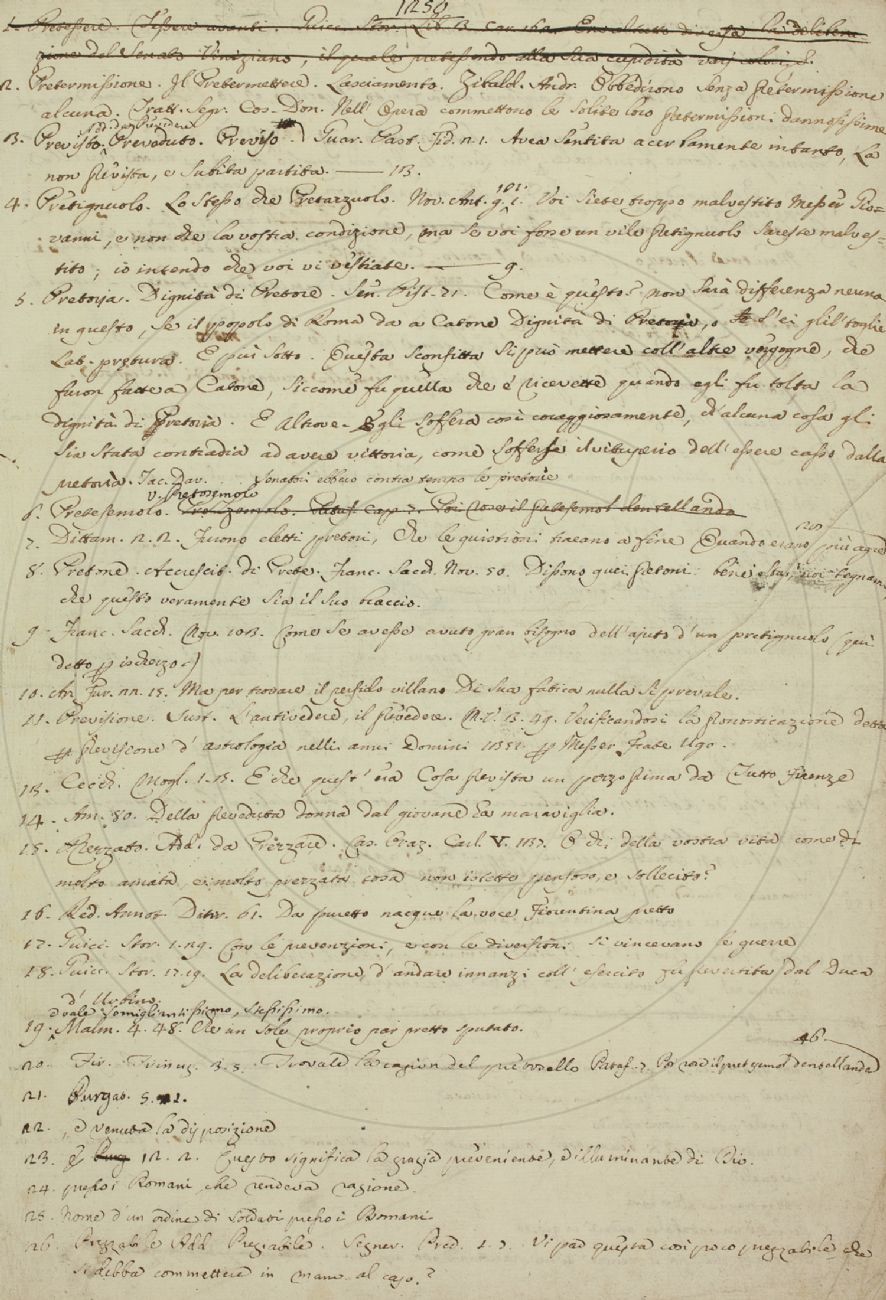 1250
1. Pretessere. Tessere avanti. Guicc. Stor. Lib. 13. car. Era al tutto diversa la delibera
zione del Senato Viniziano, il quale pretessendo alla sua cupidità varj colori, &.
2. Pretermissione. Il Pretermettere. Lasciamento. Zibald. Andr. Obbedirono senza pretermissione
alcuna. Tratt. Segr. Cos. Don. Nell' Opera commettono le solite loro pretermissioni dannosissime
3. Previsto. Add. da Prevedere Preveduto. Previso. Guar. Past. Fid. n. 1. Avea sentita acerbamente intanto, La
non prevista, e subita partita. — 113.
4. Pretignuolo. Lo stesso che Pretazzuolo. Nov. Ant. 101. g. 1. Voi siete troppo malvestito Messer Gio=
vanni, e non che la vostra condizione, ma se voi foste un vile pretignuolo sareste malves=
tito; io intendo che voi vi vestiate. — g.
5. Pretoria. Dignità di Pretore. Sen. Pist. 71. Come è questo? non sarà differenza neuna
in questo, se il popolo di Roma da a Catone Dignità di Pretoria, o s'ei glil' toglie
Lat. prętura. E più sotto. Questa sconfitta si può mettere coll' altre vergogne, che
furon fatte a Catone, siccome fu quella che e' ricevette quando egli fu tolta la
dignità di Pretoria. E Altrove. Egli soffera così coraggiosamente, ch'alcuna cosa gli
sia stata contradia ad avere vittoria, come sofferse il vituperio dell' essere casso dalla
pretoria. Tac. Dav. Senatori ebbero contra tempo le pretorie
6. Pretesemolo. v. Pretosemolo Prezzemolo. Pataf. cap. 7. Poi vose il pretesemol dentellando
7. Dittam. 2. 2. Furono eletti pretori, Che le quistioni traeano a fine Quando erano più
8. Pretone. Accrescit. di Prete. Franc. Sacch. Nov. 50. Dissono quei pretoni: bene sta, noi
che questo veramente sia il suo braccio.
9. Franc. Sacch. Nov. 103. Come se avesse avuto gran bisogno dell' ajuto d' un pretignuolo (qui
detto p ischerzo.)
10. Ar. Fur. 15. Ma per trovare il perfido villano Di sua fatica nulla si prevale.
11. Previsione. Sust. L'antivedere, il prevedere. M. V. 3. 49. Verificandosi la pronosticazione detta
p previsione d' astrologia nelli anni Domini p Messer Frate Ugo.
13. Cecch. Mogl. 1. 3. E che quest' era Cosa prevista un pezzo prima da Tutto Firenze
14. Am. 80. Della preveduta donna dal giovane ha maraviglia.
15. Prezzato. Add. da Prezzare. Cas. Oraz. Carl. V. 137. E chi della vostra vita come di
molto amata, e molto prezzata cosa non istette pensoso, e sollecito?
16. Red. Annot. Ditir. 61. Da puretto nacque la voce Fiorentina pretto
17. Guicc. Stor. 1. Con le prevenzioni, e con le diversioni si vincevano le guerre
18. Guicc. Stor. 17. 19. La deliberazione d' andare innanzi coll' esercito fu prevertita dal Duca
d' Urbino.
19. Malm. 4. 48. vale Somigliantissimo, Stessissimo. Che un sole proprio par pretto sputato.
20. Fir. Trinuz. 3. 3. Trovate la cagion del Pataf. 7. Poi vose il pretesemol dentellando
21. Purgat. 5. 1.
22. , e venuta la disposizione
23. E Purg 12. 2. Questo significa la grazia preveniente, e illuminante di Dio.
24. presso i Romani, che rendeva ragione.
25. Nome d' un ordine di soldati presso i Romani.
26. Prezzabile Add. Pregiabile. Segner. Pred. 1. 7. Vi par questa così poco prezzabile, che
si debba commettere in mano al caso?